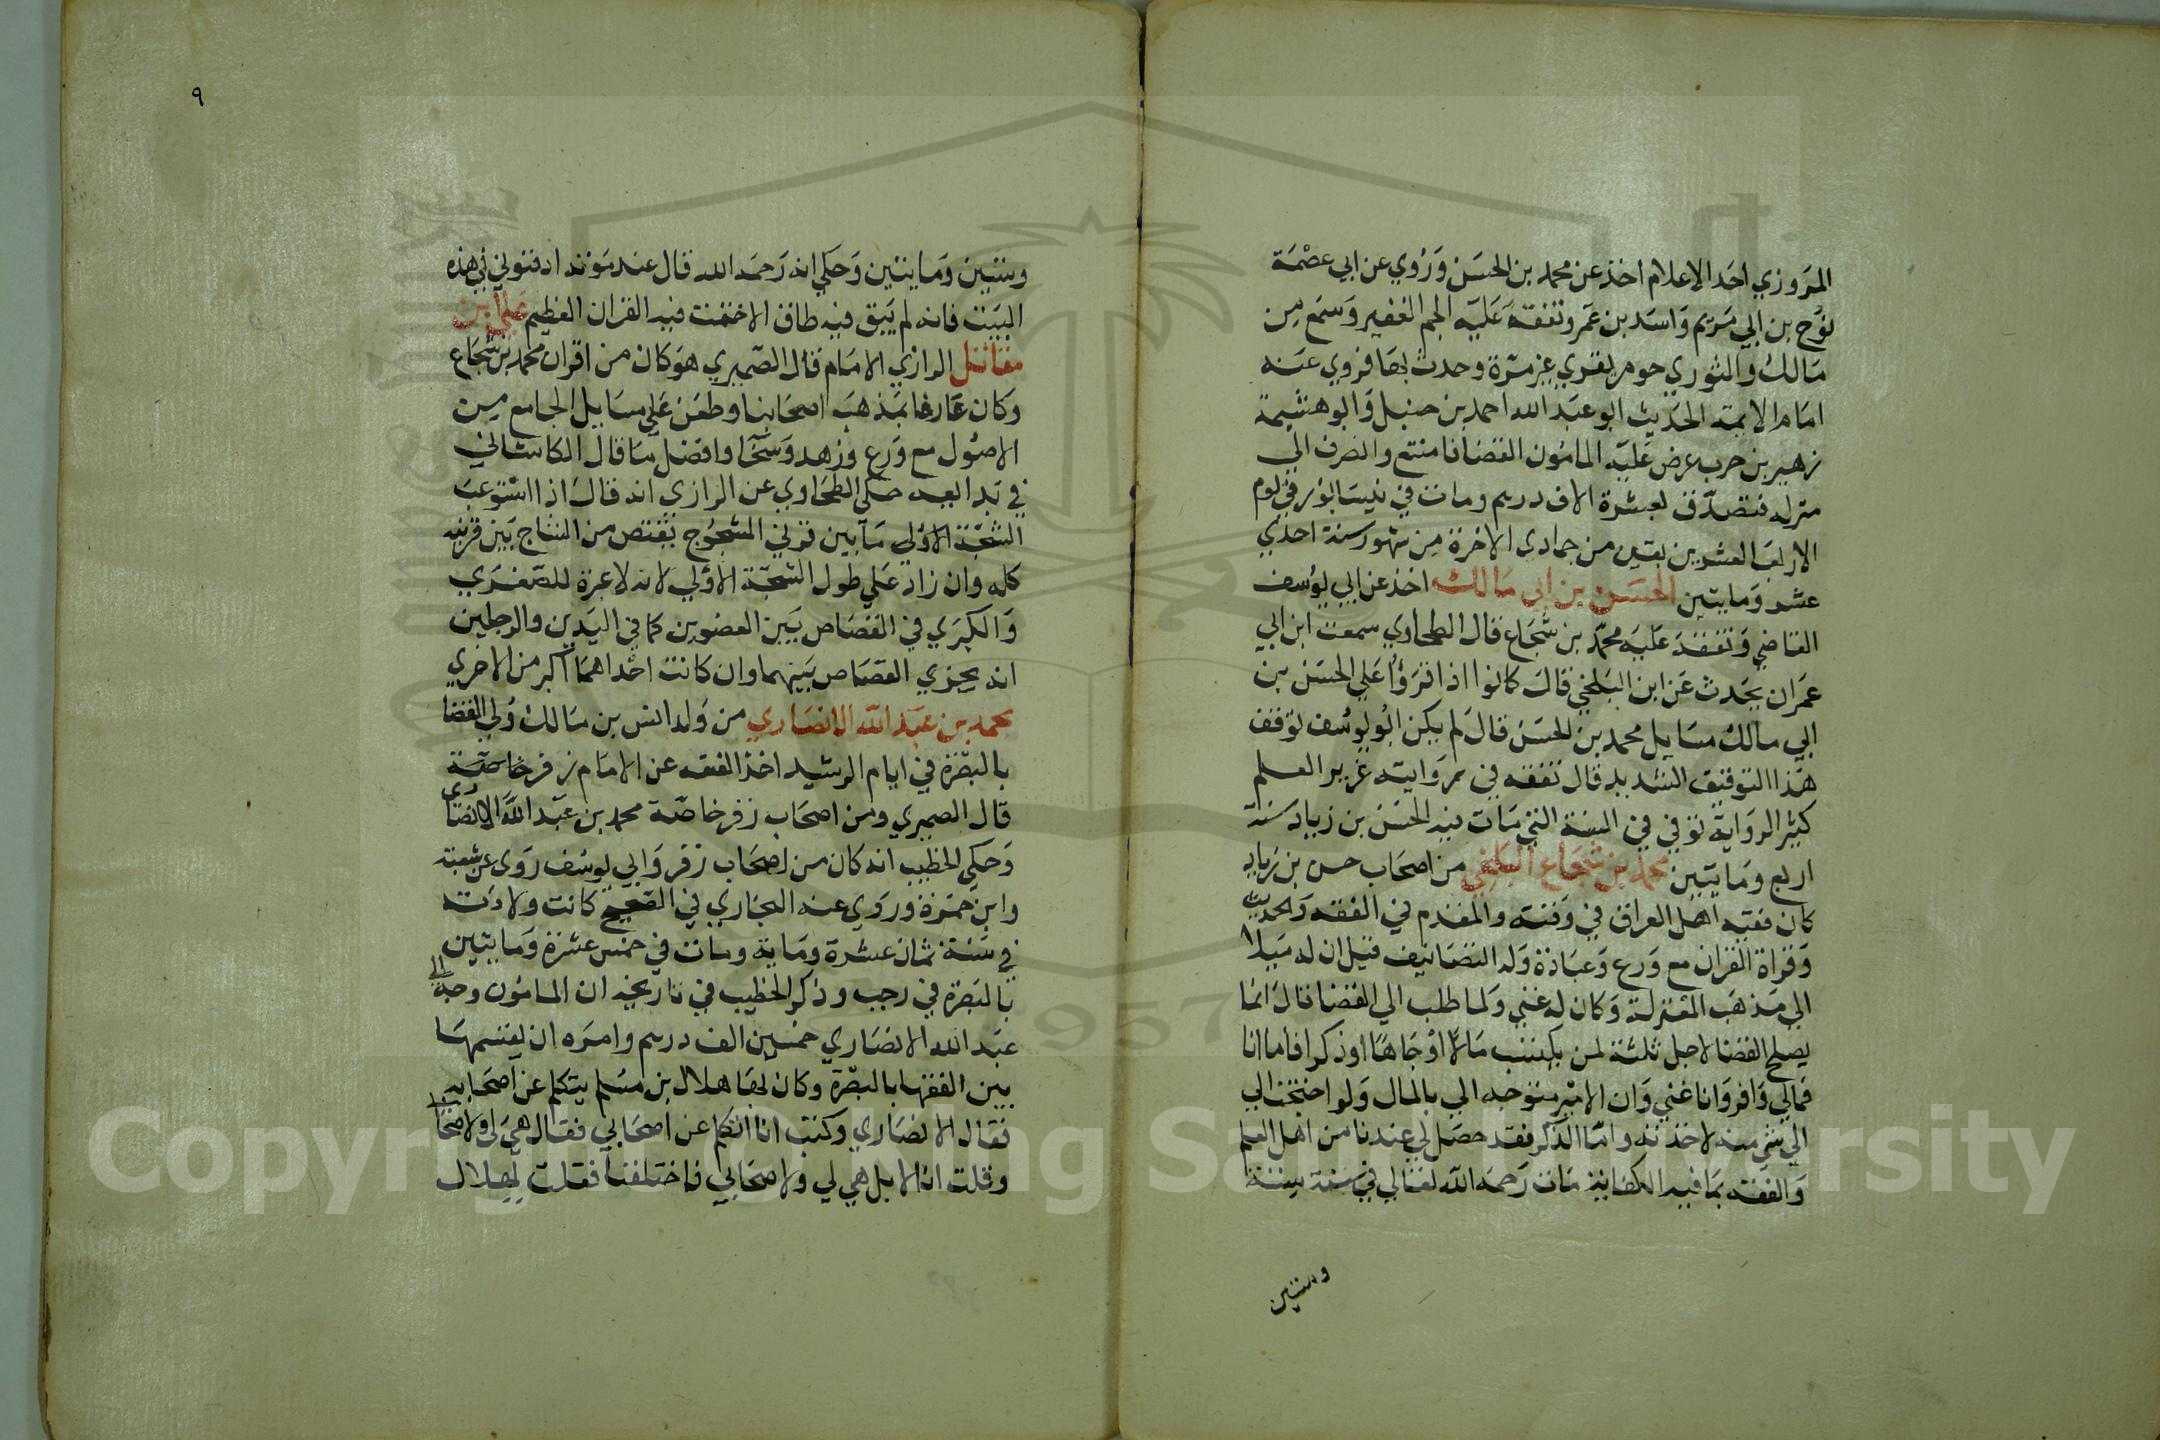 المروزي احد الاعلام اخذ عن محمد بن الحسن وروي عن ابي عصمة
نوح بن ابي مريم واسد بن عمر وتفقه عليه الجم الغفير وسمع من
مالك والثوري مرة وحدث بها فروي عنه
امام الايمة الحديث ابو عبد الله احمد بن حنبل وابو هشيمة
زهير بن حرب عرض عليه المامون القضا فامتنع وانصرف الي
منزله فتصدق بعشرة الاف درهم ومات في نيسابور في يوم
الاربعا لعشرين بقين من جمادى الاخرة من شهور سنة احدي
عشر ومايتين الحسن بن ابي مالك اخذ عن ابي يوسف
القاضي وتفقه عليه محمد بن شجاع قال الطحاوي سمعت ابن ابي
عمران يحدث عن ابن البلخي قال كانوا اذا قرؤا علي الحسن بن
ابي مالك مسايل محمد بن الحسن قال لم يكن ابو يوسف توقف
هذا التوفيق الشديد قال تفقه في روايته غزير العلم
كثير الرواية توفي في السنة التي مات فيه الحسن بن زياد سنة
اربع ومايتين محمد بن شجاع البلخي من اصحاب حسن بن زياد
كان فقيه اهل العراق في وقته والمقدم في الفقه والحديث
وقراة القران مع ورع وعبادة وله التصانيف قيل ان له ميلا
الي مذهب المعتزلة وكان له غني ولما طلب الي القضا قال انما
يصلح القضا لاجل ثلثة لمن يكتسب مالا او جاها او ذكرا فاما انا
فمالي وافر وانا غني وان الامير متوجه الي بالمال ولو احتجت الي
الي شي منه لاخذته واما الذكر فقد حصل لي عندنا من اهل العلم
والفقه بما فيه الكفاية مات رحمه الله تعالي في سنة ستة
وستين
٩
وستين ومايتين وحكي انه رحمه الله قال عند موته ادفنوني في هذه
البيت فانه لم يبق فيه طاق الا ختمت فيه القران العظيم علي بن
مقاتل الرازي الامام قال الصميري هو كان من اقران محمد بن شجاع
وكان عارفا بمذهب اصحابنا وطعن علي مسايل الجامع من
الاصول مع ورع وزهد وسخا وافضل ما قال الكاشاني
في بدايعه حكى الطحاوي عن الرازي انه قال اذا استوعب
الشجة الاولي ما بين قرني المشجوج يقتص من الشاج بين قرنيه
كله وان زاد علي طول الشجة الاولي لانه لا عبرة للصغري
والكبري في القصاص بين العضوين كما في اليدين والرجلين
انه يجزي القصاص بينهما وان كانت احداهما اكبر من الاخري
محمد بن عبد الله الانصاري من ولد انس بن مالك ولي القضا
بالبصرة في ايام الرشيد اخذ الفقه عن الامام زفر خاصة
قال الصميري ومن اصحاب زفر خاصة محمد بن عبد الله الانصاري
وحكي الخطيب انه كان من اصحاب زفر وابي يوسف روى عن شعبة
وابن حمزة وروي عنه البخاري في الصحيح كانت ولادته
في سنة ثمان عشرة وماية ومات في خمس عشرة ومايتين
بالبصرة في رجب وذكر الخطيب في تاريخه ان المامون وجه الي
عبد الله الانصاري خمسين الف درهم وامره ان يقسمها
بين الفقها بالبصرة وكان لها هلال بن مسلم يتكلم عن اصحابه
فقال الانصاري وكنت انا اتكلم عن اصحابي فقال هي لي ولاصحابي
وقلت انا لا بل هي لي ولاصحابي فاختلفنا فقلت لهلال
Copyright © King Saud University
1957